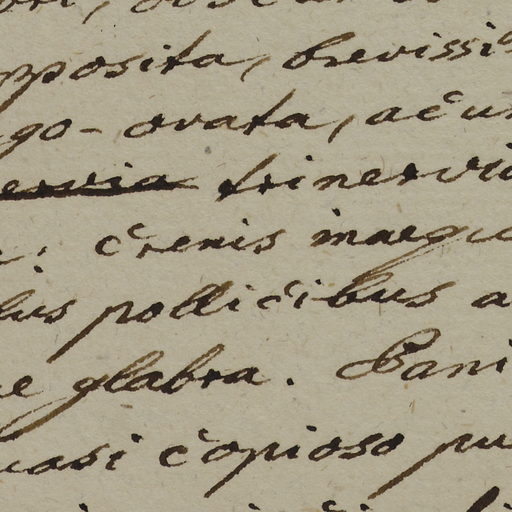 pposita, brevissi
go-ovata, acu
ervia trinervi
crenis inaequ
lus pollicibus a
e glabra. Pani
uasi copioso pu